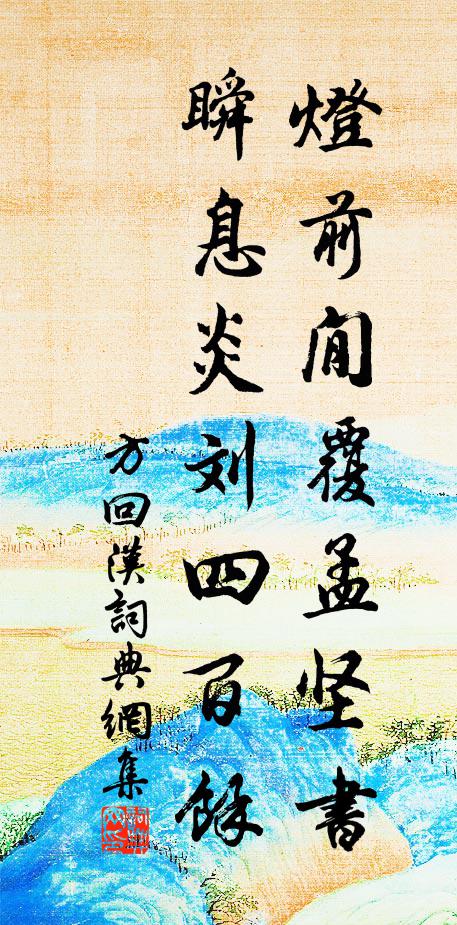 燈前閒覆孟坚書
瞬息炎刘四百餘
方回漢詞典網集